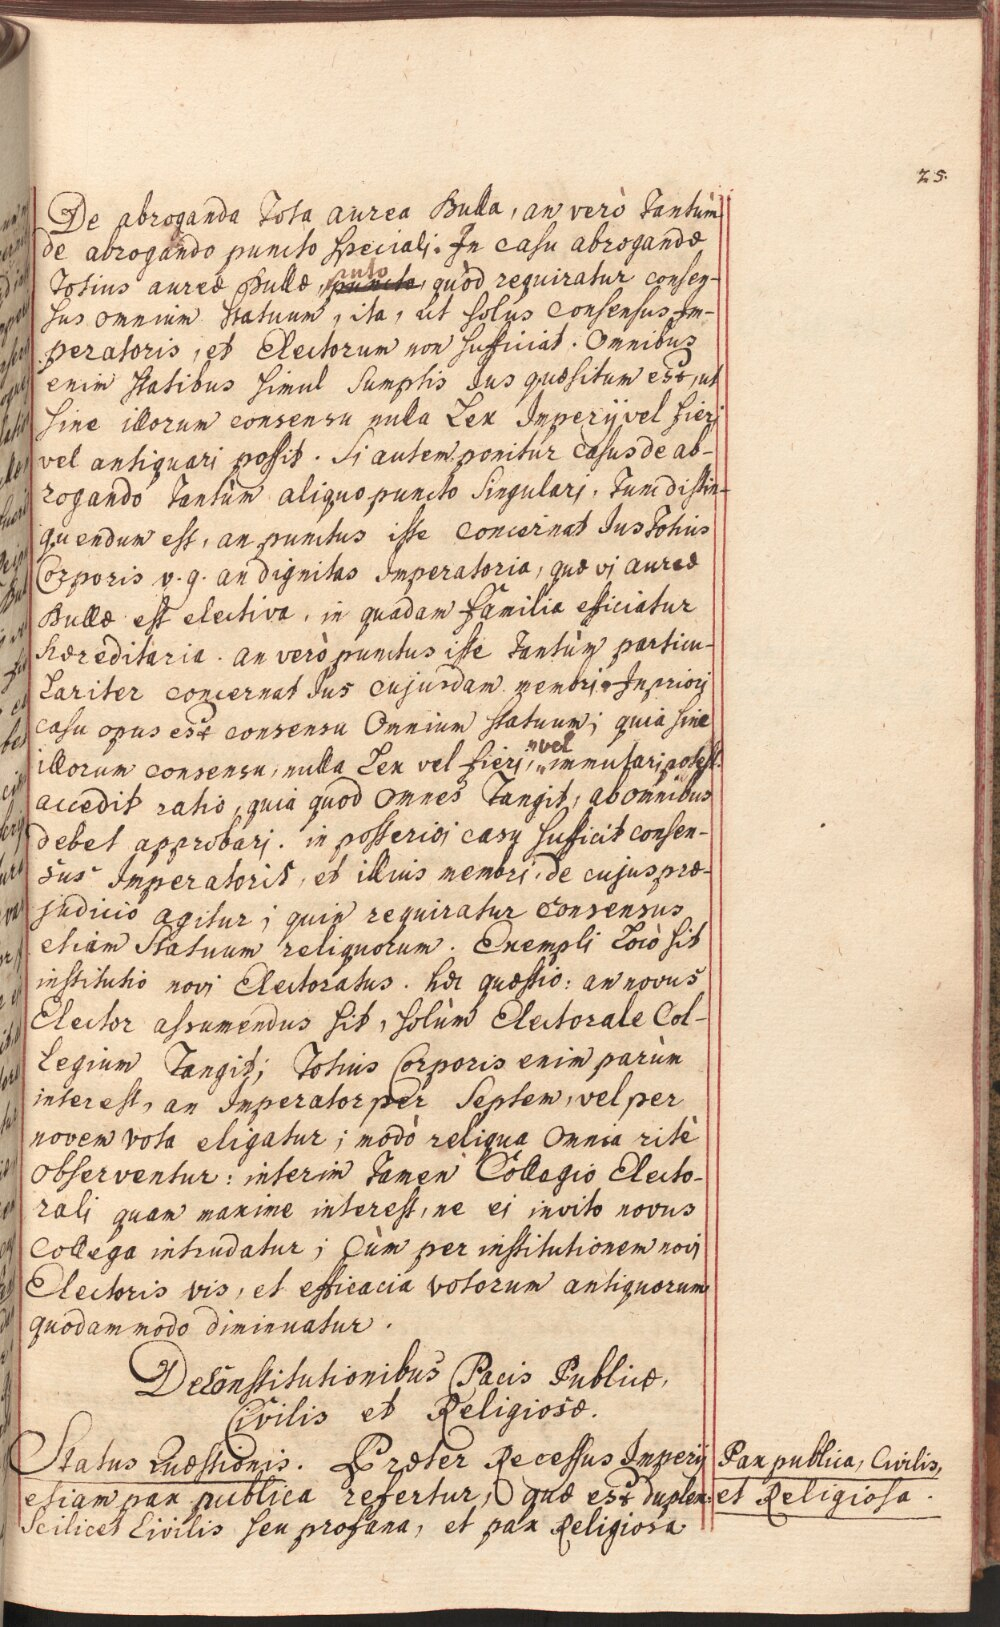 25.
De abroganda Tota aurea Bulla, an verò Tantùm
de abrogando puncto speciali. In casu abrogandæ
Totius aureæ Bullæ, puto, quòd requiratur consen-
sus omnium statuum, ita, ut solus consensus Im-
peratoris, et Electorum non sufficiat. Omnibus
enim statibus simul sumptis Jus quæsitum est, ut
sine illorum consensu nulla Lex Imperij vel fieri
vel antiquari possit. Si autem ponitur casus de ab-
rogando Tantùm aliquo puncto singulari, Tum distin-
guendum est, an punctus iste concernat Jus Totius
Corporis v. g. an dignitas Imperatoria, quæ vi aureæ
Bullæ est electiva, in quadam familia efficiatur
hæreditaria. an verò punctus iste Tantùm particu-
Lariter concernat Jus cujusdam membri. In priori
casu opus est consensu Omnium statuum; quia sine
illorum consensu, nulla Lex vel fieri, vel immutari potest.
accedit ratio, quia quod Omnes Tangit, ab omnibus
debet approbari. in posteriori casu sufficit consen-
sus Imperatoris, et illius membri, de cujus præ-
judicio agitur; quin requiratur consensus
etiam Statuum reliquorum. Exempli Locò sit
institutio novi Electoratus. hæc quæstio: an novus
Elector assumendus sit, solùm Electorale Col-
Legium Tangit; Totius Corporis enim parùm
interest, an Imperator per Septem, vel per
novem vota eligatur; modò reliqua Omnia ritè
Observentur: interim Tamen Collagio Electo-
rali quam maxime interest, ne ei invito novus
Collega intrudatur; Cùm per institutionem novi
Electoris vis, et efficacia votorum antiquorum
quodammodo diminuatur.
De Constitutionibus Pacis Publicæ,
Civilis et Religiosæ.
Status Quæstionis. Præter Recessus Imperij
etiam pax publica refertur, quæ est duplex
Scilicet Civilis seu profana, et pax Religiosa
Pax publica, Civilis,
et Religiosa.